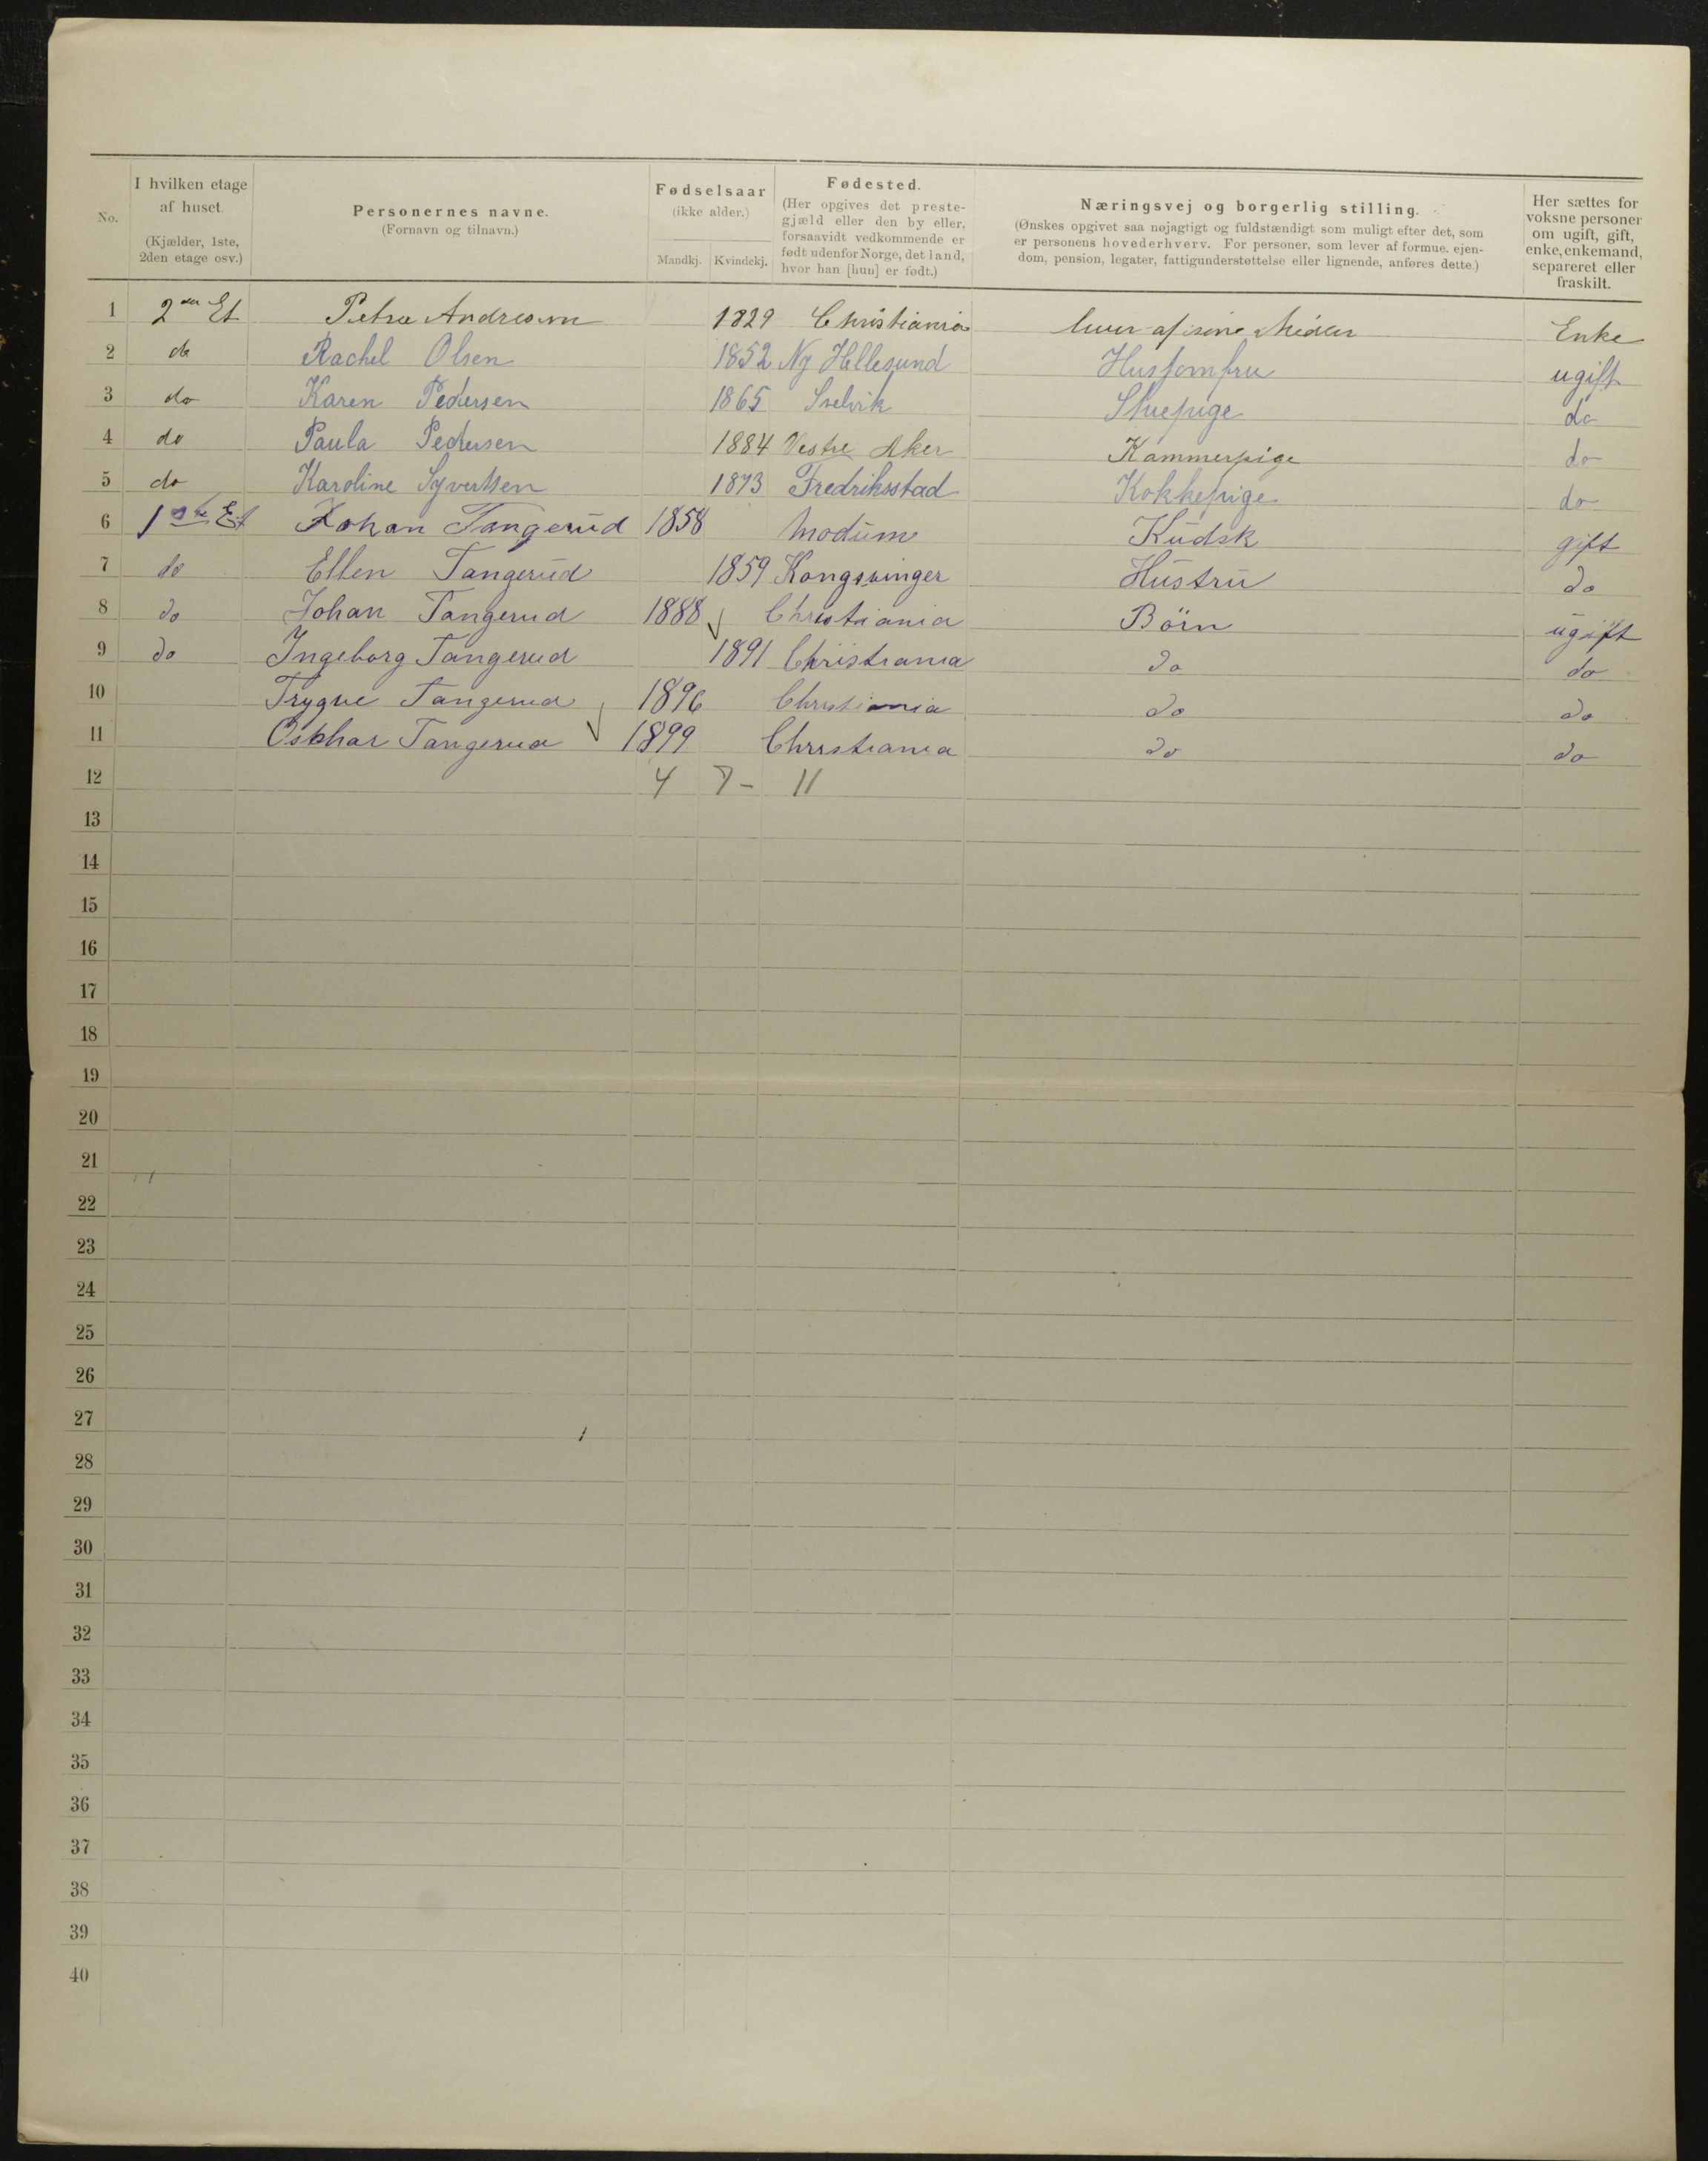 No.
I hvilken etage
af huset.
(Kjælder, 1ste,
2den etage osv.)
Personernes navne.
(Fornavn og tilnavn.)
Fødselsaar
(ikke alder.)
Mandkj. Kvindekj.
Fødested.
(Her opgives det preste-
gjæld eller den by eller,
forsaavidt vedkommende er
født udenfor Norge, det land,
hvor han [hun] er født.)
Næringsvej og borgerlig stilling.
(Ønskes opgivet saa nøjagtigt og fuldstændigt som muligt efter det, som
er personens hovederhverv. For personer, som lever af formue, ejen-
dom, pension, legater, fattigunderstøttelse eller lignende, anføres dette.)
Her sættes for
voksne personer
om ugift, gift,
enke, enkemand,
separeret eller
fraskilt.
1 2den Et Petra Andresen 1829 Christiania lever af sine Midler Enke
2 do Rachel Olsen 1852 Ny Hellesund Husjomfru ugift
3 do Karen Pedersen 1865 Svelvik Stuepige do
4 do Paula Pedersen 1884 Vestre Aker Kammerpige do
5 do Karoline Syvertsen 1873 Fredriksstad Kokkepige do
6 1ste Et Johan Tangerud 1858 Modum Kudsk gift
7 do Ellen Tangerud 1859 Kongsvinger Hustru do
8 do Johan Tangerud 1888 Christiania Börn ugift
9 do Ingeborg Tangerud 1891 Christiania do do
10 Trygve Tangerud 1896 Christiania do do
11 Oskhar Tangerud 1899 Christiania do do
12 4 7 - 11
13
14
15
16
17
18
19
20
21
22
23
24
25
26
27
28
29
30
31
32
33
34
35
36
37
38
39
40